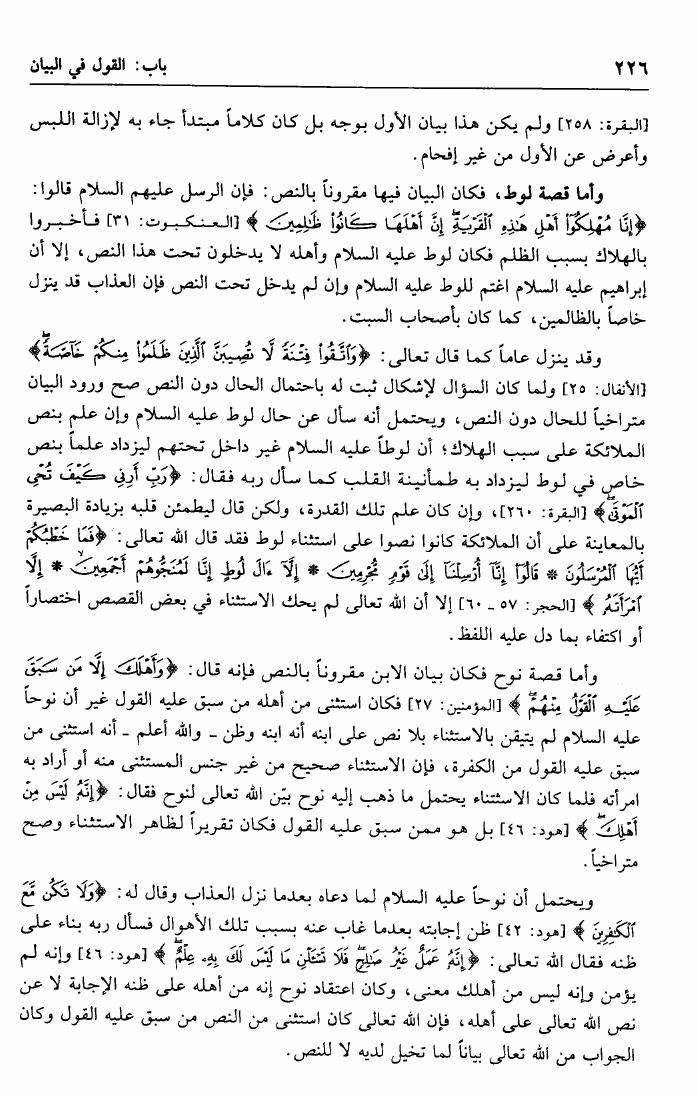 ٢٢٦ باب: القول في البيان
[البقرة: ٢٥٨] ولم يكن هذا بيان الأول بوجه بل كان كلاماً مبتدأ جاء به لإزالة اللبس
وأعرض عن الأول من غير إفحام.
وأما قصة لوط، فكان البيان فيها مقروناً بالنص: فإن الرسل عليهم السلام قالوا:
﴿إِنَّا مُهْلِكُوٓا۟ أَهْلِ هَٰذِهِ ٱلْقَرْيَةِ ۖ إِنَّ أَهْلَهَا كَانُوا۟ ظَٰلِمِينَ﴾ [العنكبوت: ٣١] فأخبروا
بالهلاك بسبب الظلم فكان لوط عليه السلام وأهله لا يدخلون تحت هذا النص، إلا أن
إبراهيم عليه السلام اغتم للوط عليه السلام وإن لم يدخل تحت النص فإن العذاب قد ينزل
خاصاً بالظالمين، كما كان بأصحاب السبت.
وقد ينزل عاماً كما قال تعالى: ﴿وَٱتَّقُوا۟ فِتْنَةً لَّا تُصِيبَنَّ ٱلَّذِينَ ظَلَمُوا۟ مِنكُمْ خَآصَّةً ۖ﴾
[الأنفال: ٢٥] ولما كان السؤال لإشكال ثبت له باحتمال الحال دون النص صح ورود البيان
متراخياً للحال دون النص، ويحتمل أنه سأل عن حال لوط عليه السلام وإن علم بنص
الملائكة على سبب الهلاك؛ أن لوطاً عليه السلام غير داخل تحتهم ليزداد علماً بنص
خاص في لوط ليزداد به طمأنينة القلب كما سأل ربه فقال: ﴿رَبِّ أَرِنِى كَيْفَ تُحْىِ
ٱلْمَوْتَىٰ ۖ﴾ [البقرة: ٢٦٠]، وإن كان علم تلك القدرة، ولكن قال ليطمئن قلبه بزيادة البصيرة
بالمعاينة على أن الملائكة كانوا نصوا على استثناء لوط فقد قال الله تعالى: ﴿فَمَا خَطْبُكُمْ
أَيُّهَا ٱلْمُرْسَلُونَ * قَالُوٓا۟ إِنَّآ أُرْسِلْنَآ إِلَىٰ قَوْمٍ مُّجْرِمِينَ * إِلَّآ ءَالَ لُوطٍ إِنَّا لَمُنَجُّوهُمْ أَجْمَعِينَ * إِلَّا
ٱمْرَأَتَهُۥ﴾ [الحجر: ٥٧ ـ ٦٠] إلا أن الله تعالى لم يحك الاستثناء في بعض القصص اختصاراً
أو اكتفاء بما دل عليه اللفظ.
وأما قصة نوح فكان بيان الابن مقروناً بالنص فإنه قال: ﴿وَأَهْلَكَ إِلَّا مَن سَبَقَ
عَلَيْهِ ٱلْقَوْلُ مِنْهُمْ ۖ﴾ [المؤمنين: ٢٧] فكان استثنى من أهله من سبق عليه القول غير أن نوحاً
عليه السلام لم يتيقن بالاستثناء بلا نص على ابنه أنه ابنه وظن ـ والله أعلم ـ أنه استثنى من
سبق عليه القول من الكفرة، فإن الاستثناء صحيح من غير جنس المستثنى منه أو أراد به
امرأته فلما كان الاستثناء يحتمل ما ذهب إليه نوح بيّن الله تعالى لنوح فقال: ﴿إِنَّهُۥ لَيْسَ مِنْ
أَهْلِكَ ۖ﴾ [هود: ٤٦] بل هو ممن سبق عليه القول فكان تقريراً لظاهر الاستثناء وصح
متراخياً.
ويحتمل أن نوحاً عليه السلام لما دعاه بعدما نزل العذاب وقال له: ﴿وَلَا تَكُن مَّعَ
ٱلْكَٰفِرِينَ﴾ [هود: ٤٢] ظن إجابته بعدما غاب عنه بسبب تلك الأهوال فسأل ربه بناء على
ظنه فقال الله تعالى: ﴿إِنَّهُۥ عَمَلٌ غَيْرُ صَٰلِحٍ ۖ فَلَا تَسْـَٔلْنِ مَا لَيْسَ لَكَ بِهِۦ عِلْمٌ ۖ﴾ [هود: ٤٦] وإنه لم
يؤمن وإنه ليس من أهلك معنى، وكان اعتقاد نوح إنه من أهله على ظنه الإجابة لا عن
نص الله تعالى على أهله، فإن الله تعالى كان استثنى من النص من سبق عليه القول وكان
الجواب من الله تعالى بياناً لما تخيل لديه لا للنص.